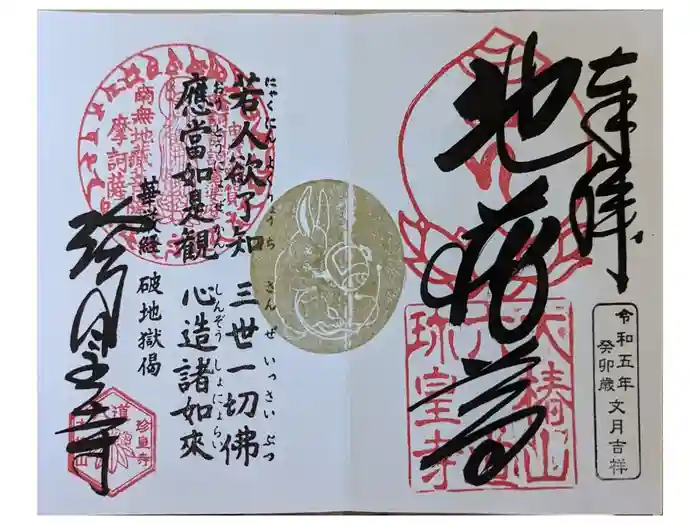 奉拝
地蔵尊
令和五年
癸卯歳
文月吉祥
大椿山
六道
珎皇寺
若人欲了知 三世一切佛
にゃくにんよくりょうち さんぜいっさいぶつ
應當如是観 心造諸如來
おうとうにょぜかん しんぞうしょにょらい
華嚴経 破地獄偈
南無地蔵菩薩
摩訶薩
珍皇寺
六道
珍皇寺